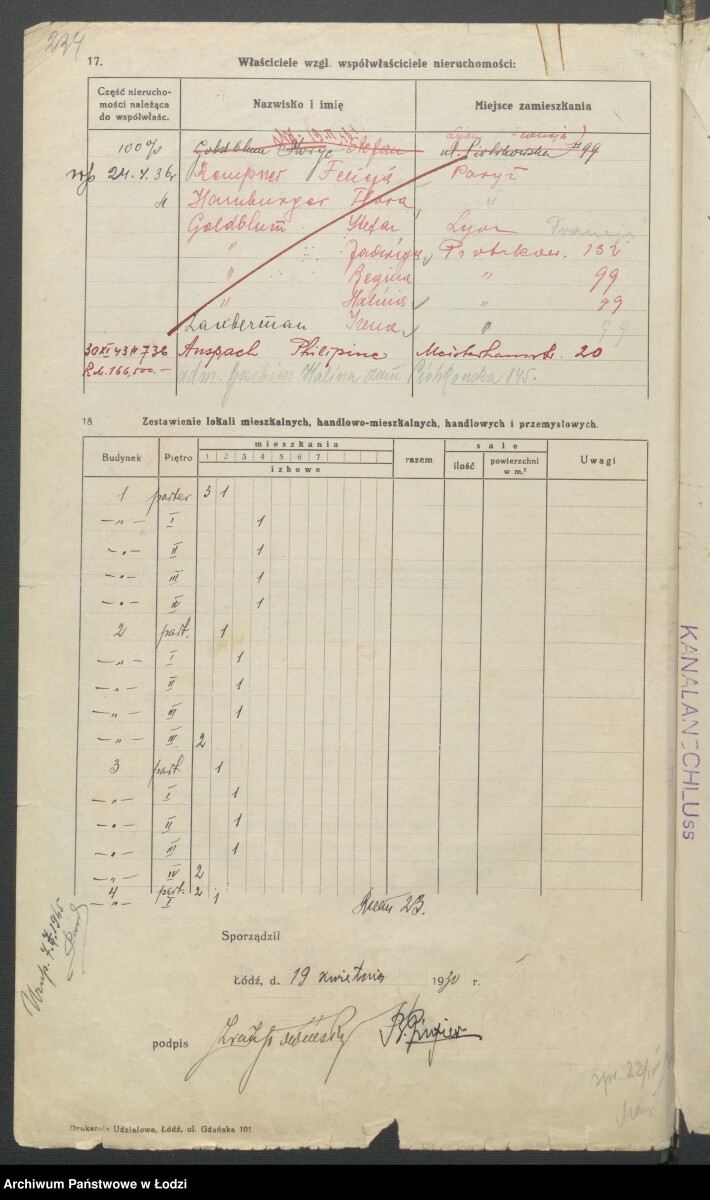 224
17. Właściciele wzgl. współwłaściciele nieruchomości:
Część nierucho-
mości należąca
do współwłaśc.
Nazwisko i imię
Miejsce zamieszkania
100% Goldblum Stefan ul. Piotrkowska # 99
Kempner Felicja Paryż
Hamburger Flora "
Goldblum Stefan Lyon Francja
" Jadwiga Piotrkow. 132
" Regina " 99
" Halina " 99
Lauberman Irena " 99
30 XI 43 # 736 Anspach Philipine Meisterhausstr. 20
R.M. 166,500.- adm. Halina zam Piotrkowska 145.
18. Zestawienie lokali mieszkalnych, handlowo-mieszkalnych, handlowych i przemysłowych.
Budynek
Piętro
mieszkania
1 2 3 4 5 6 7
izbowe
razem
sale
ilość
powierzchni
w m.²
Uwagi
1 parter 3 1
— „ — I 1
— „ — II 1
— „ — III 1
— „ — IV 1
2 part. 1
— „ — I 1
— „ — II 1
— „ — III 1
— „ — IV 2
3 part. 1
— „ — I 1
— „ — II 1
— „ — III 1
— „ — IV 2
4 part. 2
— „ — I 1
Razem 23.
Sporządził
Łódź, d. 19 kwietnia 1930 r.
podpis
Drukarnia Udziałowa, Łódź, ul. Gdańska 101.
KANALANSCHLUss
Archiwum Państwowe w Łodzi